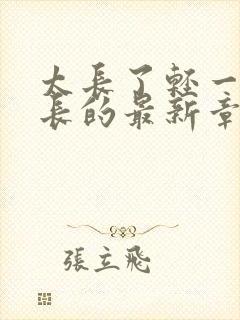 太長了輕一
長的最新章
張立飛